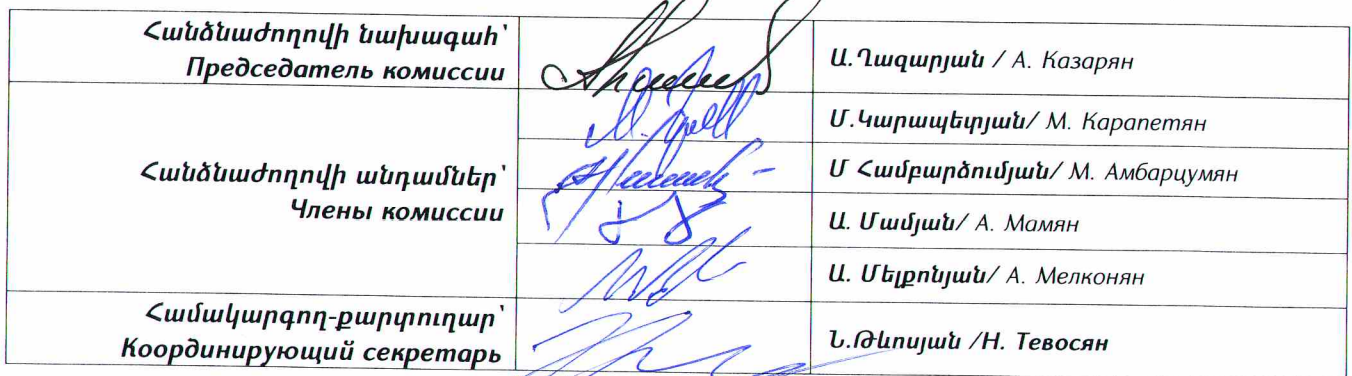 Հանձնաժողովի նախագահ՝
Председатель комиссии
Ա.Ղազարյան / А. Казарян
Մ.Կարապետյան/ М. Карапетян
Հանձնաժողովի անդամներ՝
Члены комиссии
Մ Համբարձումյան/ М. Амбарцумян
Ա. Մամյան/ А. Мамян
Ա. Մելքոնյան/ А. Мелконян
Համակարգող-քարտուղար՝
Координирующий секретарь
Ն.Թևոսյան /Н. Тевосян